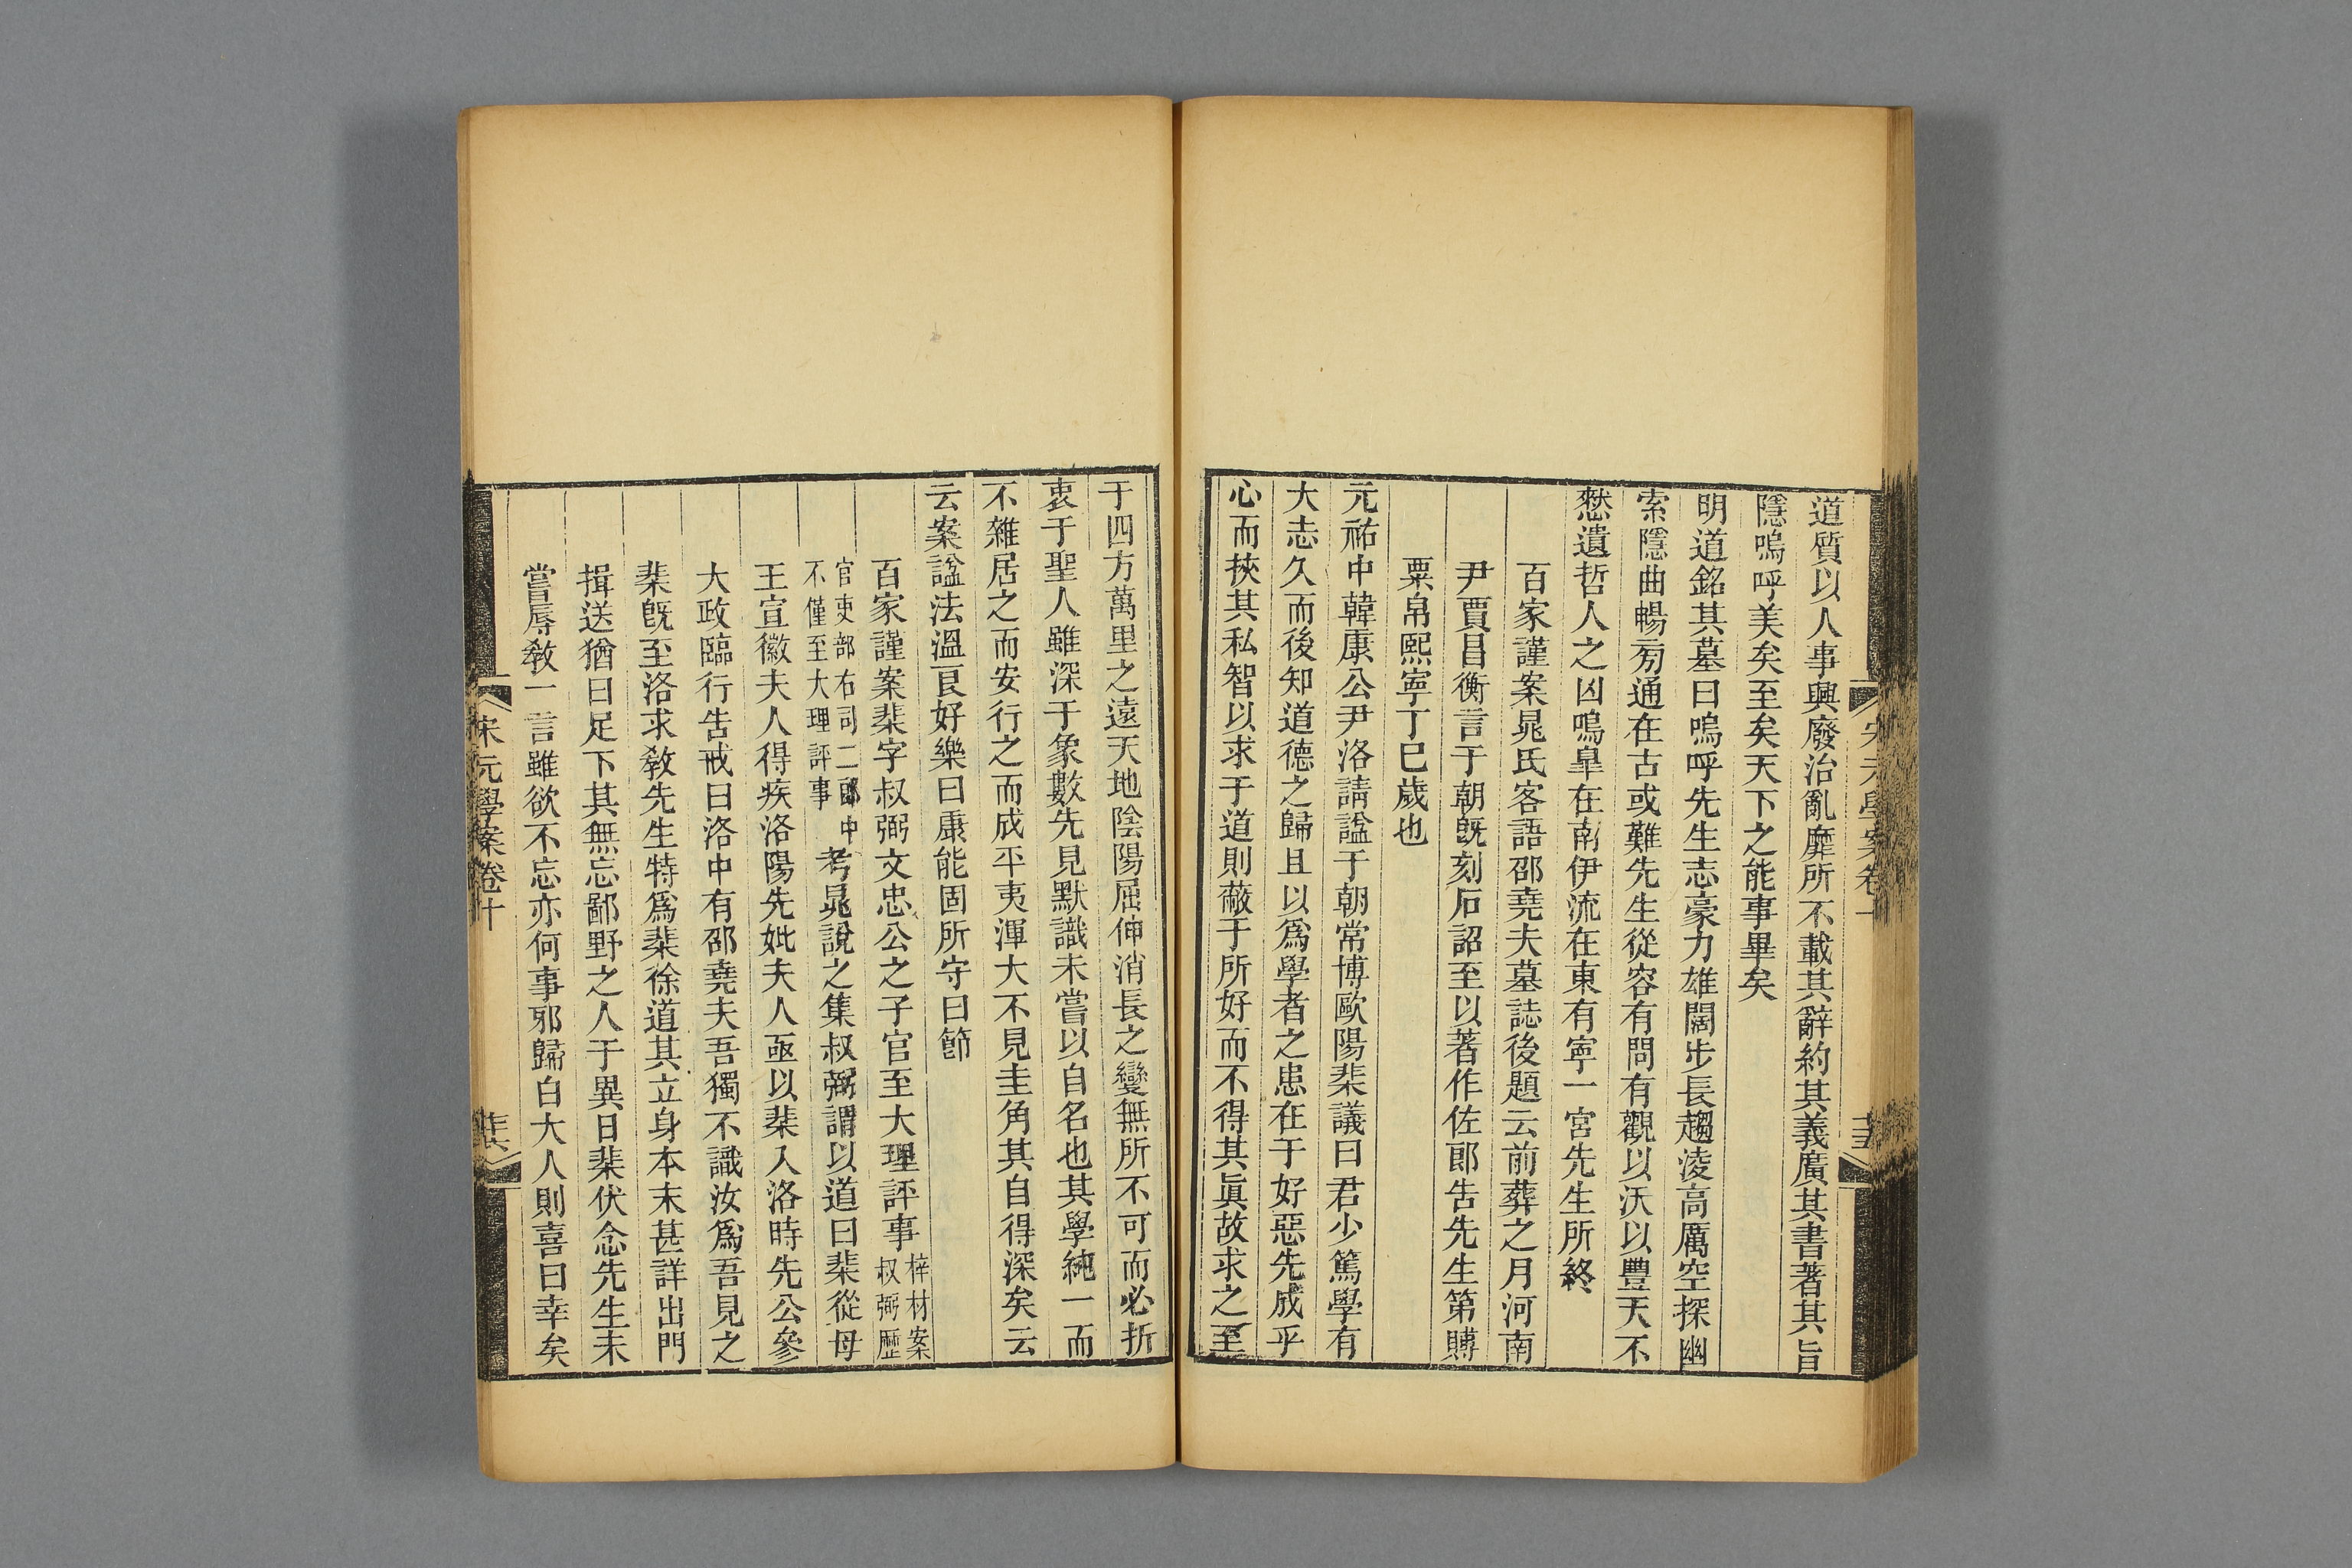 道質以人事興廢治亂靡所不載其辭約其義廣其書著其旨
隱嗚呼美矣至矣天下之能事畢矣
明道銘其墓曰嗚呼先生志豪力雄闊步長趨淩高厲空探幽
索隱曲暢旁通在古或難先生從容有問有觀以沃以豐天不
憖遺哲人之凶鳴臯在南伊流在東有寧一宮先生所終
百家謹案晁氏客語邵堯夫墓誌後題云前葬之月河南
尹賈昌衡言于朝旣刻石詔至以著作佐郎告先生第賻
粟帛熙寧丁巳歲也
元祐中韓康公尹洛請諡于朝常博歐陽棐議曰君少篤學有
大志久而後知道德之歸且以爲學者之患在于好惡先成乎
心而挾其私智以求于道則蔽于所好而不得其眞故求之至
于四方萬里之遠天地陰陽屈伸消長之變無所不可而必折
衷于聖人雖深于象數先見默識未嘗以自名也其學純一而
不雜居之而安行之而成平夷渾大不見圭角其自得深矣云
云案諡法溫良好樂曰康能固所守曰節
百家謹案棐字叔弼文忠公之子官至大理評事梓材案叔弼歷
官吏部右司二郎中不僅至大理評事考晁說之集叔弼謂以道曰棐從母
王宣徽夫人得疾洛陽先妣夫人亟以棐入洛時先公參
大政臨行告戒曰洛中有邵堯夫吾獨不識汝爲吾見之
棐旣至洛求敎先生特爲棐徐道其立身本末甚詳出門
揖送猶曰足下其無忘鄙野之人于異日棐伏念先生未
嘗辱敎一言雖欲不忘亦何事邪歸白大人則喜曰幸矣
宋元學案卷十